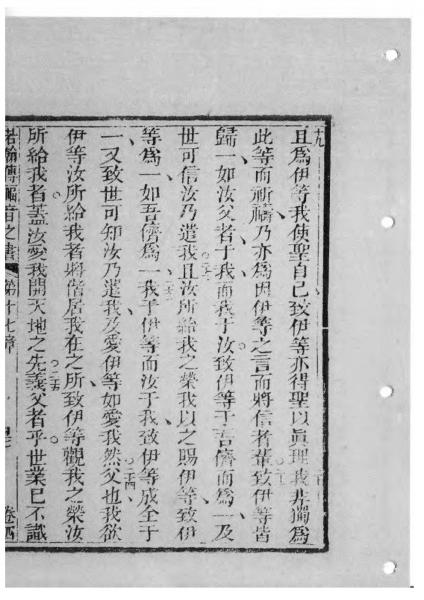 十九
且爲伊等我使聖自己致伊等亦得聖以眞理我非獨爲
此等而祈禱乃亦爲因伊等之言而將信者輩致伊等皆
歸一如汝父者于我而我于汝致伊等于吾儕而爲一及
世可信汝乃遣我且汝所給我之榮我以之賜伊等致伊
等爲一如吾儕爲一我于伊等而汝于我致伊等成全于
一又致世可知汝乃遣我及愛伊等如愛我然父也我欲
伊等汝所給我者將偕居我在之所致伊等觀我之榮汝
所給我者蓋汝愛我開天地之先義父者乎世業已不識
若翰傳福音之書 第十七章 卷四